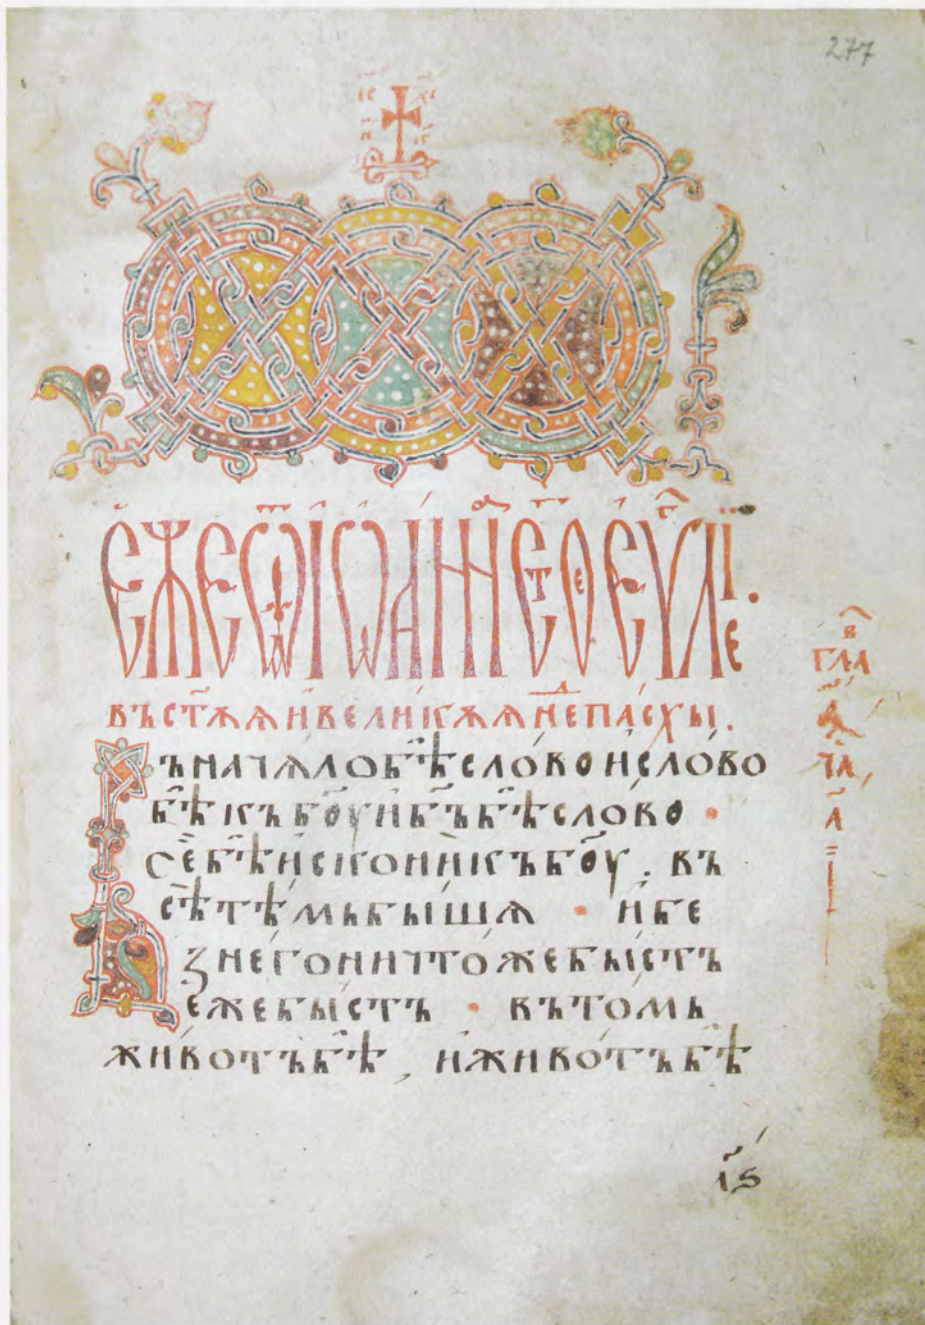 277
ЕЖЕ Ѿ ІѠАННЕ СТОЕ ЕУЛІЕ.
въ стѫѧ и великѫѧ не пасхы.
Въ начѧло бѣ слово и слово
бѣ къ боу и бъ бѣ слово ·
се бѣ искони къ боу. въ
сѣ тѣмь бышѧ · и бе
з него ничтоже быстъ
еже быстъ · въ томь
животъ бѣ, и животъ бѣ
гла
ча
а
іѕ